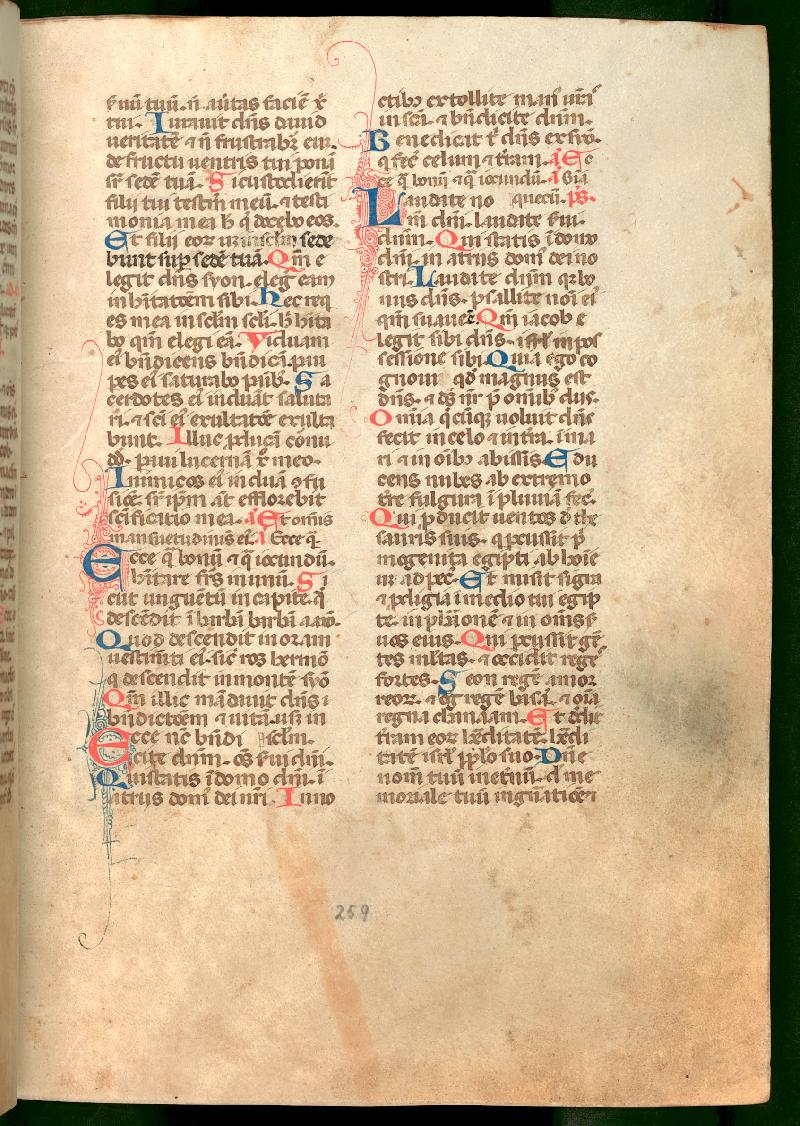 ẜuū tuū. ñ au̾tas faciē x̄
tui. Iurauit dñs dauid
ueritatē ⁊ ñ frustrabꝫ eū.
de fructu uentris tui ponā
sr̄ sedē tuā. Si custodierīt
filii tui testm̄ meū. ⁊ testi
monia mea h̄ q̄ docebo eos.
Et filii eoꝝ usqꝫ in sc̄lm sede
bunt suꝑ sedē tuā. Qm̄ e
legit dñs syon. eleg̾ eam
in hītatōem sibi. Hec req̾
es mea in sc̄lm sc̄li. h̄ hita
bo qm̄ elegi eā. Viduam
ei᷒ bn̄dicens bn̄dicā. pau
ꝑes ei᷒ saturabo panib᷒. Sa
cerdotes ei᷒ induā saluta
ri. ⁊ sc̄i ei᷒ exultatōe exulta
bunt. Illuc ꝓducā cornu
dd. paui lucernā x̄ meo.
Inimicos ei᷒ induā ꝯfu
sioē. sr̄ ip̄m aūt efflorebit
sc̄ificatio mea. a Et omīs
mansuetudinis ei᷒. a Ecce q̄
Ecce q̄ bonū ⁊ q̄ iocundū.
hītare frs̄ in unū. Si
cut unguētū in capite. q̄
descēdit ī barbā barbā aaron.
Quod descendit in oram
uestim̄ti ei᷒. sic̄ ros hermō
q̄ descendit in montē syō
Qm̄ illic mādauit dñs
bn̄dictōem ⁊ uitā. usqꝫ in
Ecce nc̄ bn̄di sc̄lm.
cite dnm̄. oēs ẜui dn̄i.
Qui statis ī domo dn̄i. ī
atriis dom᷒ dei nr̄i. In no
ctib᷒ extollite man᷒ ur̄as
in sc̄a. ⁊ bn̄dicite dnm̄.
Benedicat t̄ dñs ex syō.
q̄ fec̄ celum ⁊ t̄ram. a Ec
ce q̄ bonū ⁊ q̄ iocundū. a
Laudate no quecū. ps̄.
m̄ dn̄i. laudate ẜui
dnm̄. Qui statis ī domo
dn̄i. in atriis dom᷒ dei no
stri. Laudate dnm̄ qꝛ bo
nus dñs. psallite noī ei᷒
qm̄ suaue ē. Qm̄ iacob e
legit sibi dñs. isrl̄ in pos
sessione sibi. Quia ego co
gnoui qđ magnus est
dñs. ⁊ ds̄ nr̄ p̄ omīb᷒ diis.
Omīa q̄cūqꝫ uoluit dñs
fecit in celo ⁊ in tr̄a. ī ma
ri ⁊ in oīb᷒ abissis. Edu
cens nubes ab extremo
tr̄e fulgura ī pluuiā fec̄.
Qui ꝓducit uentos d̄ the
sauris suis. q̄ ꝑcussit p̄
mogenita egipti ab hoīe
usqꝫ ad pec̄. Et misit signa
⁊ ꝓdigia ī medio tui egip
te. in pharaonē ⁊ in omīs ẜ
uos eius. Qui ꝑcussit gē
tes m̄ltas. ⁊ occidit reges
fortes. Seon regē amor
reoꝝ. ⁊ og regē basan. ⁊ oīa
regna chanaam. Et dedit
tr̄am eoꝝ h̄editatē. h̄edi
tatē isrl̄ pp̄lo suo. Dn̄e
nom̄ tuū in et̾nū. dn̄e me
moriale tuū in gn̄atiōem
259